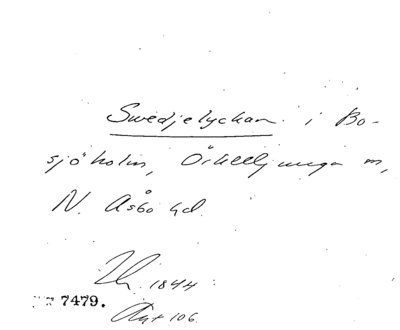 Swedjelyckan i Bo-
sjöholm, Örkelljunga sn,
N. Åsbo hd.
1844
7479.
Akt 106